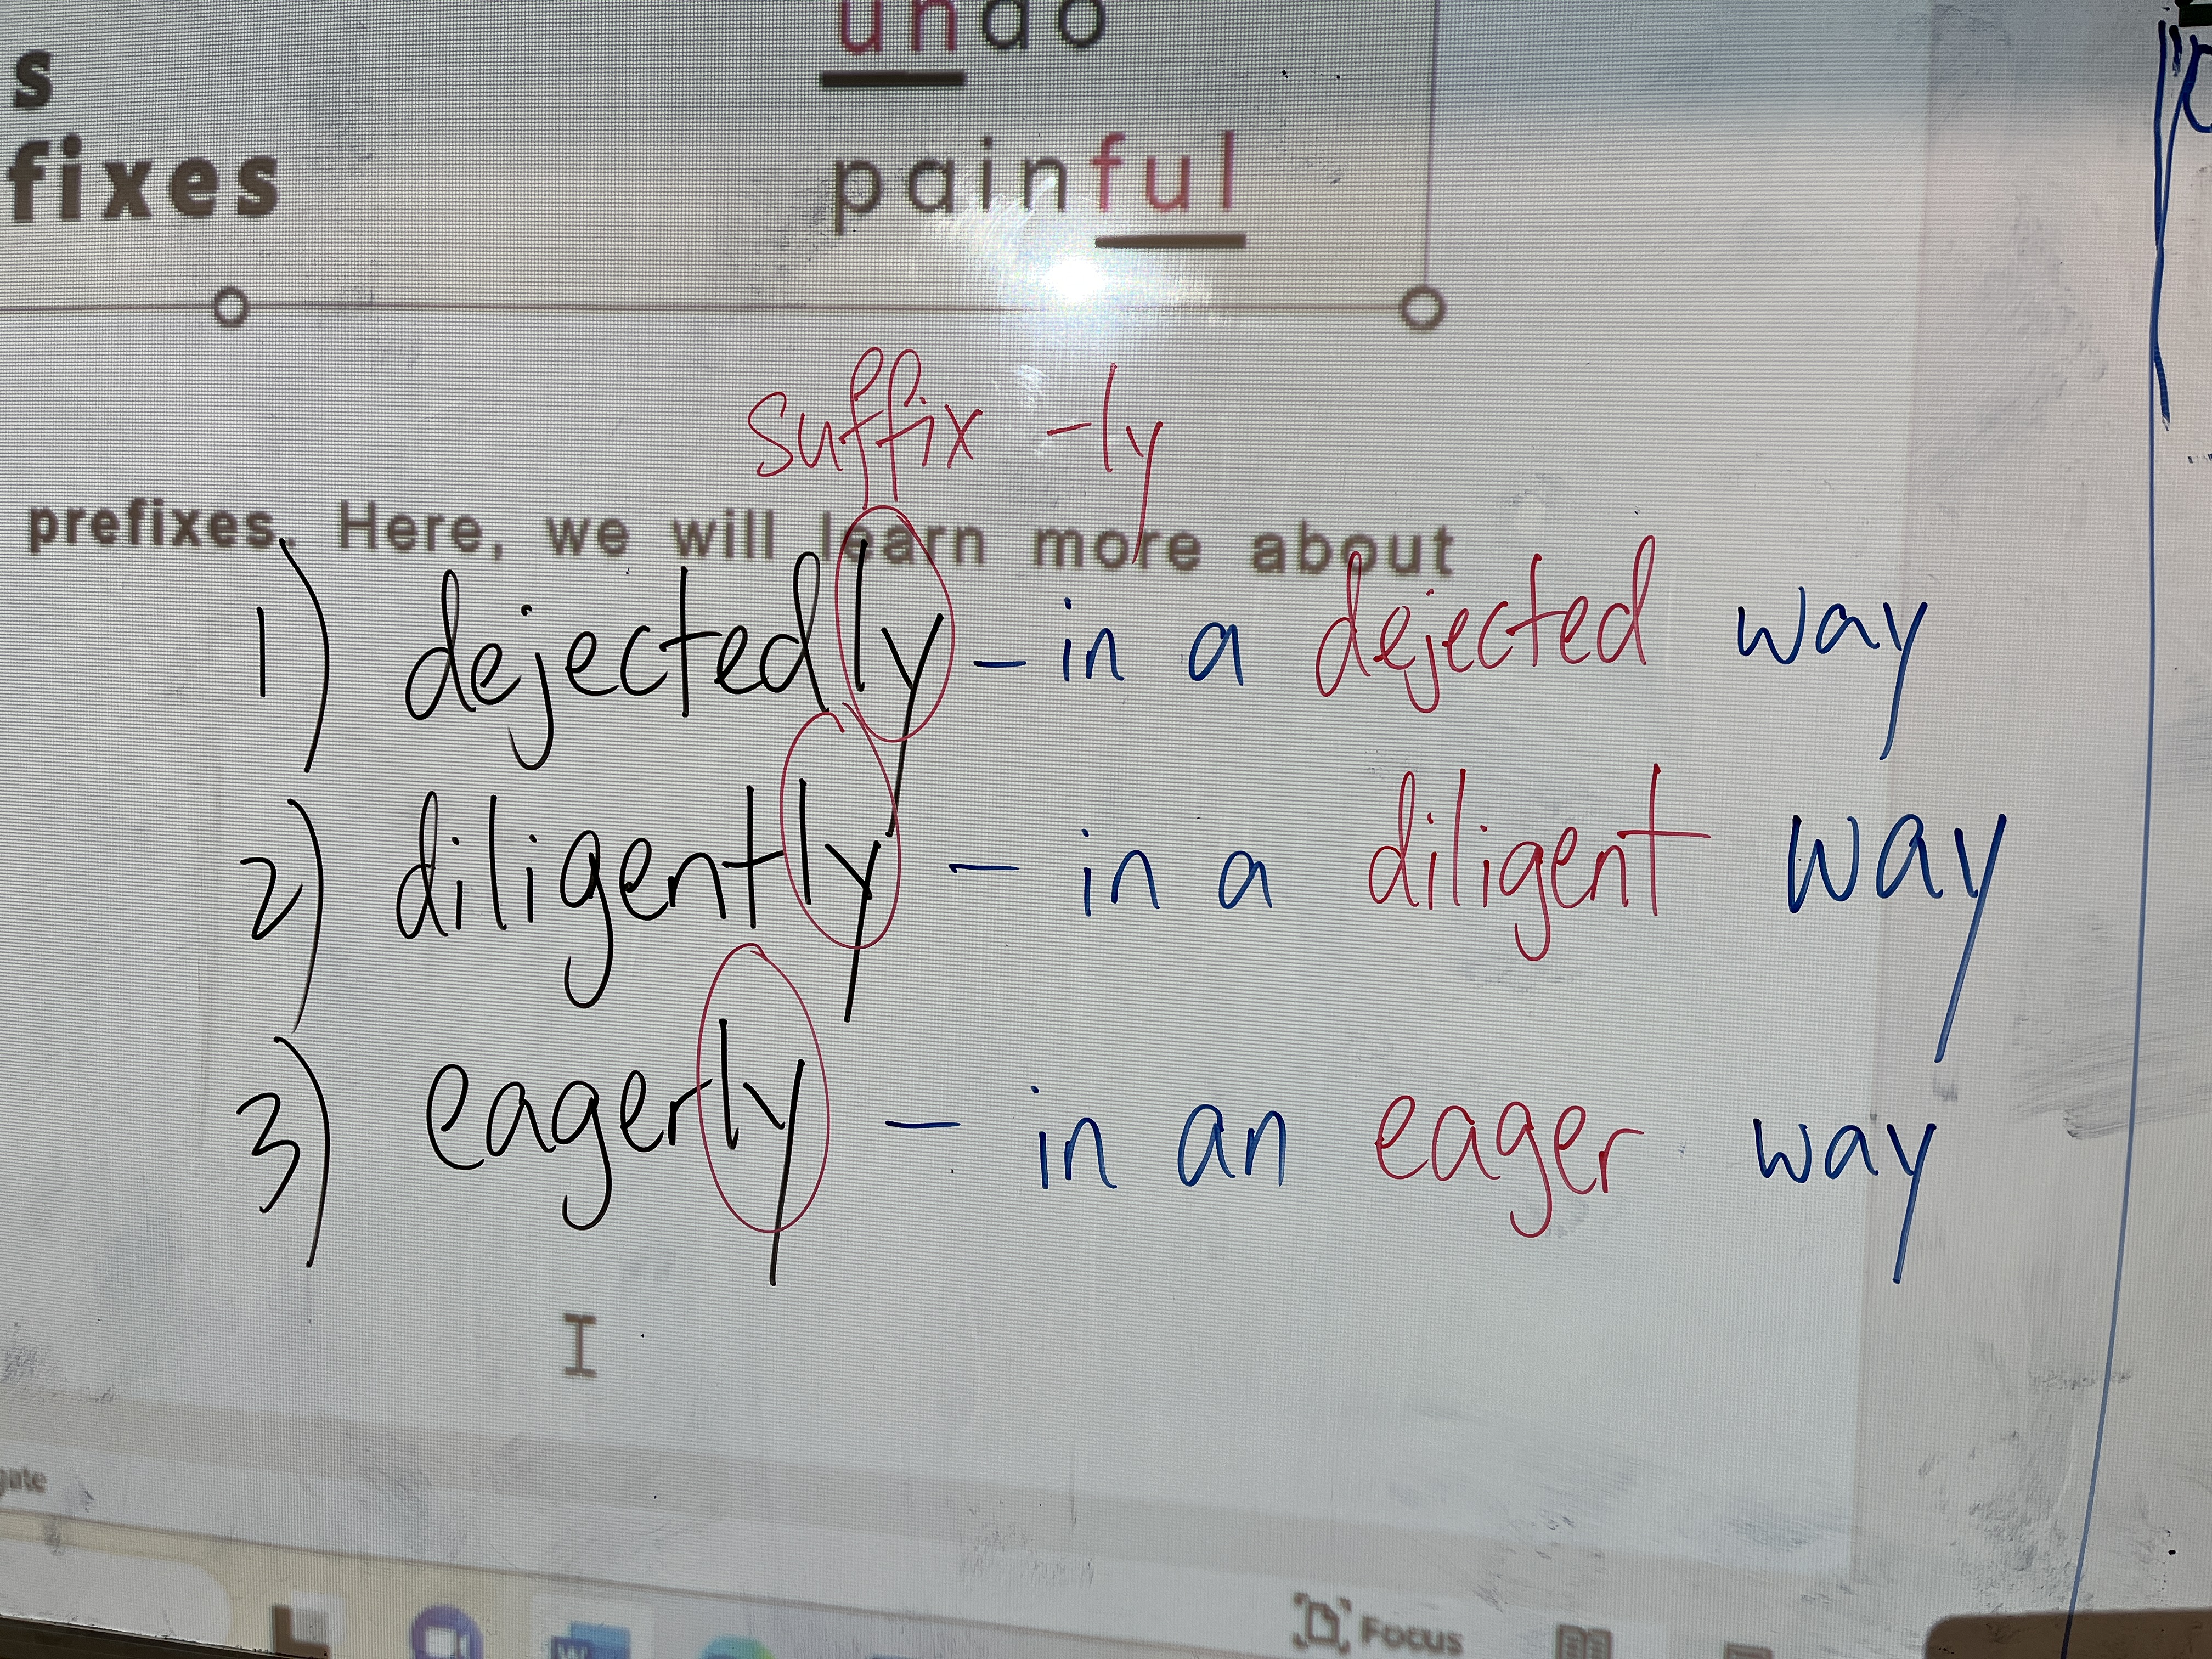 undo
s
painful
fixes
suffix -ly
prefixes. Here, we will learn more about
1) dejectedly - in a dejected way
2) diligently - in a diligent way
3) eagerly - in an eager way
Focus